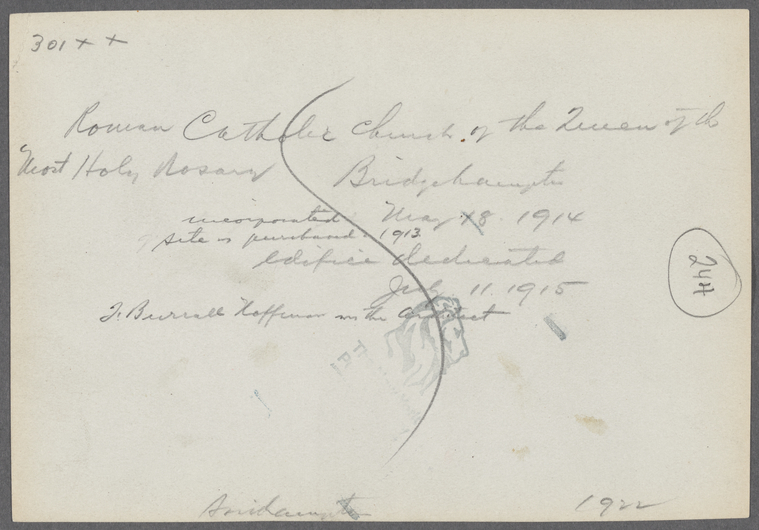 301 + +
Roman Catholic Church of the Queen of the
Most Holy Rosary Bridgehampton
incorporated May 18. 1914
site is purchased. 1913
edifice dedicated
July 11. 1915
F. Burrall Hoffman the architect
24
Bridgehampton 1922